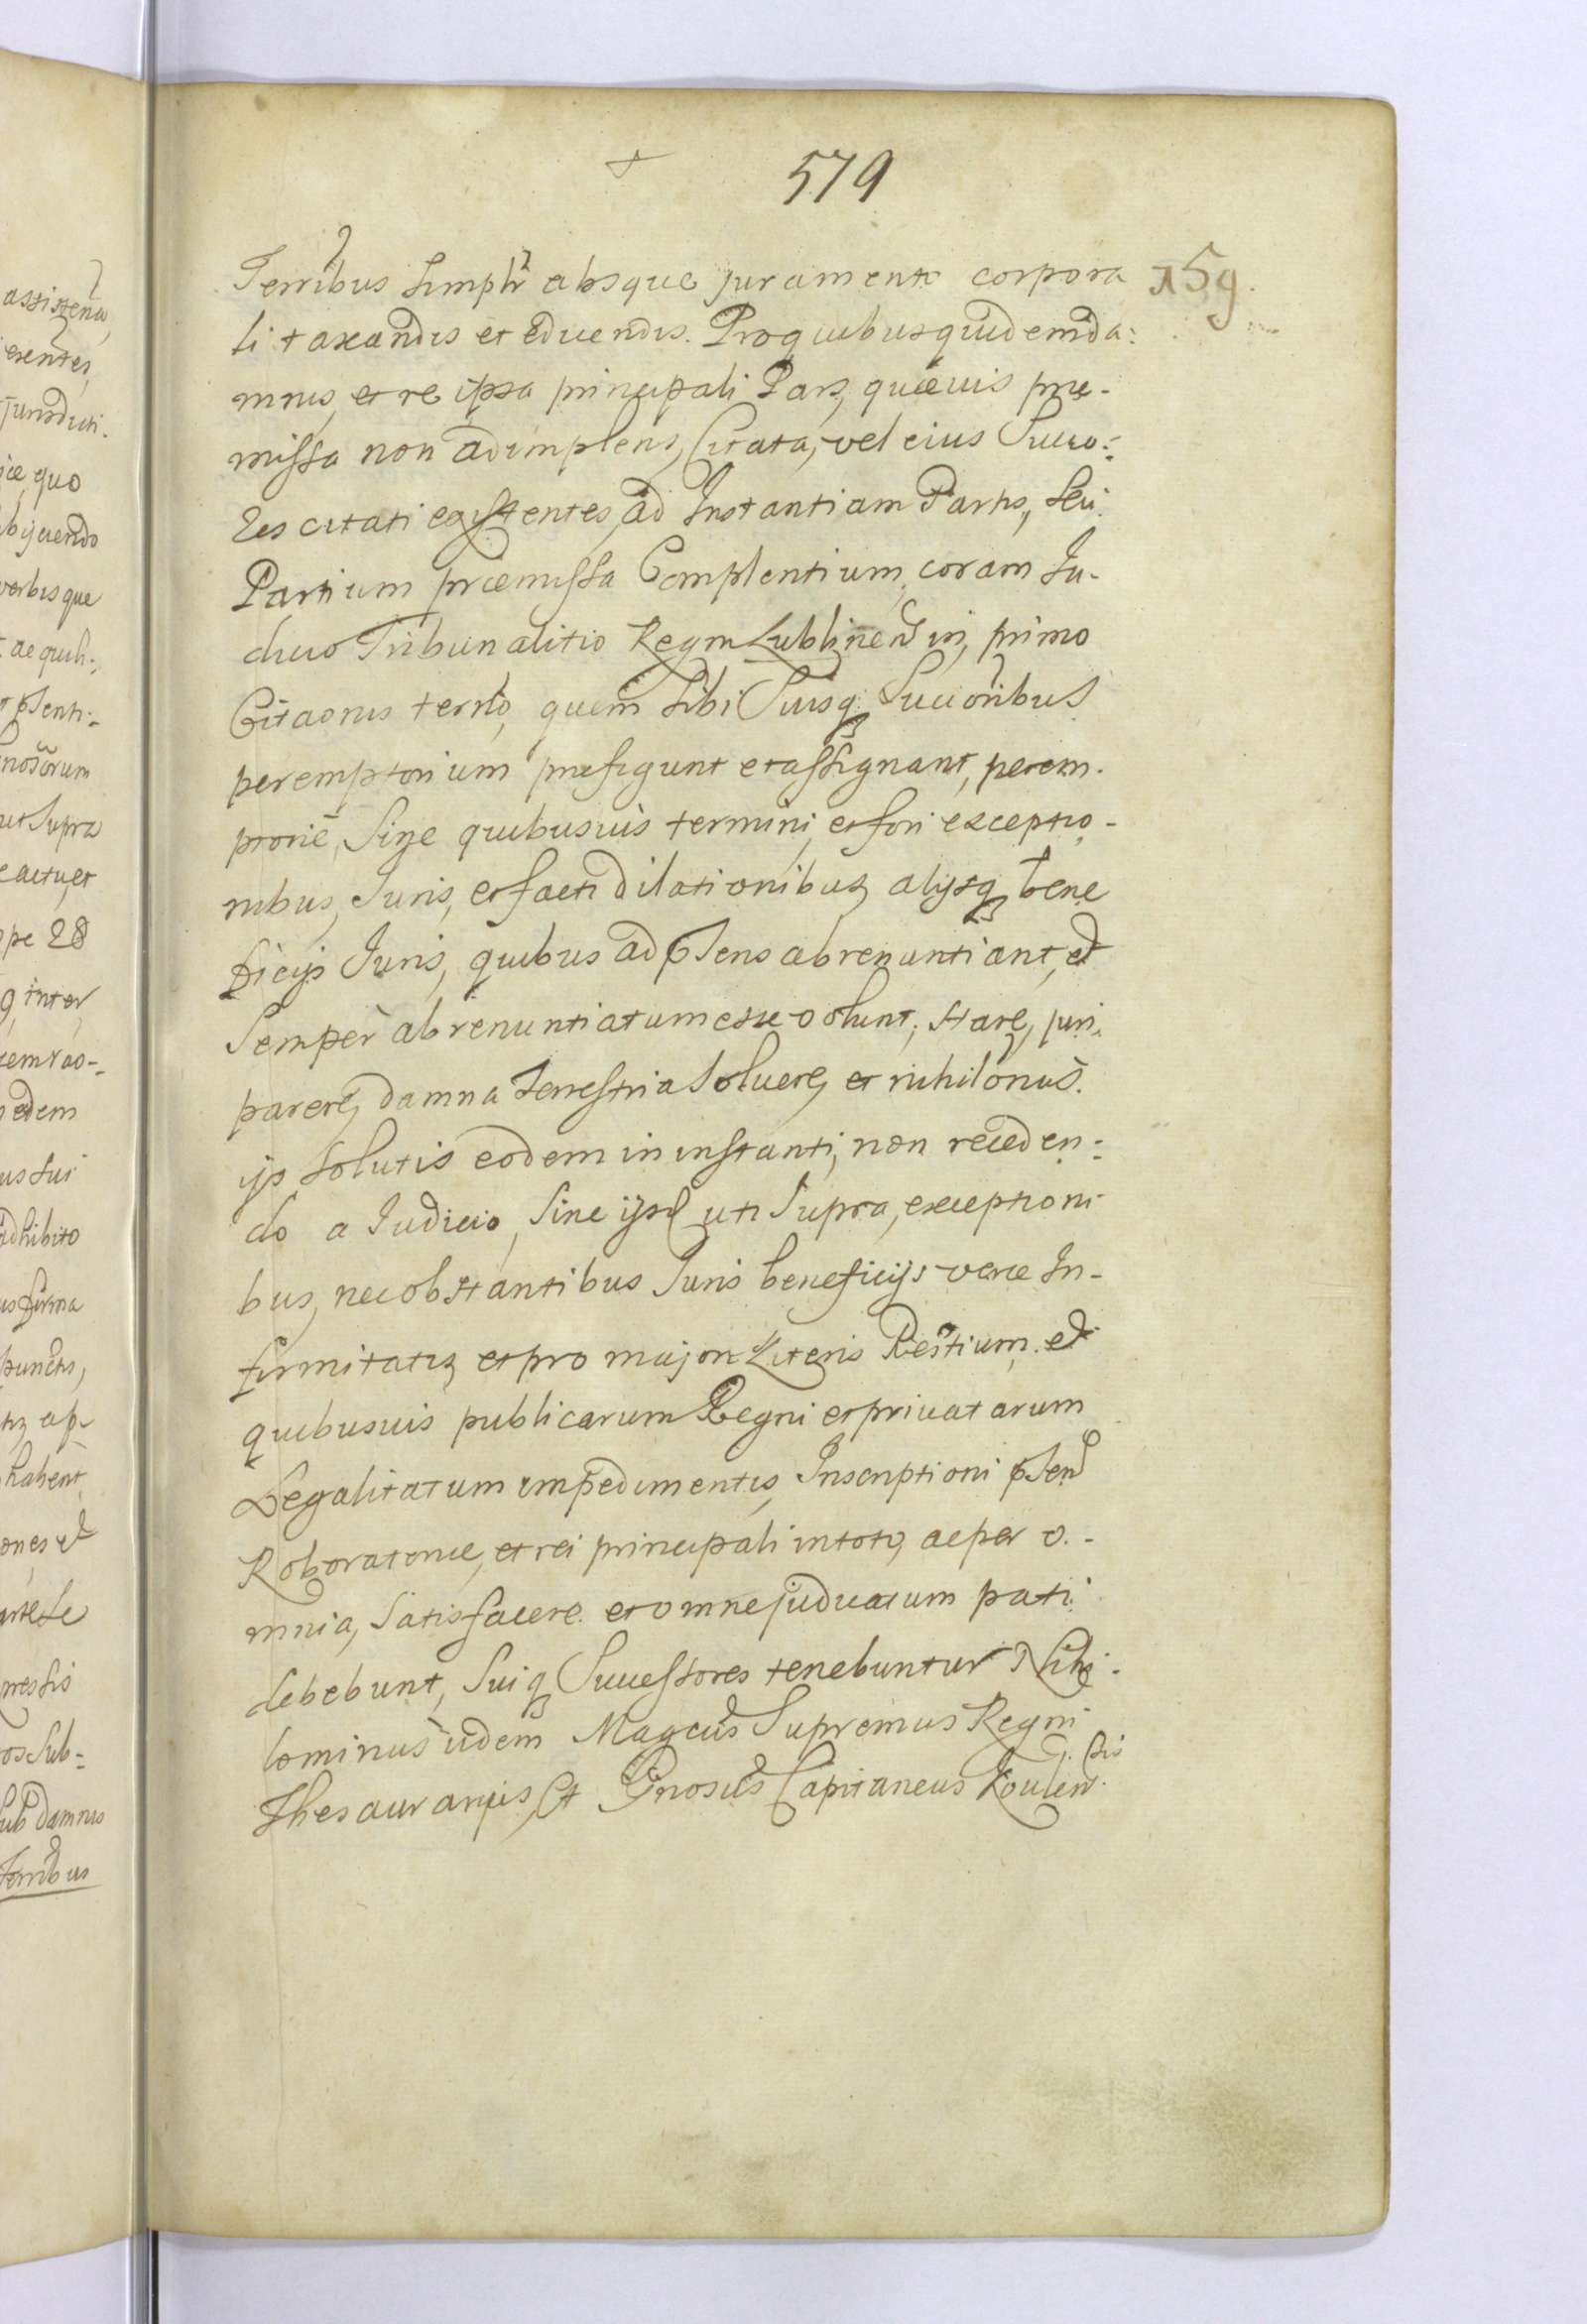 579
159.
Terribus simplr absque juramento corpora
li taxandis et educendis. Pro quibus quidem da:
mnis, et re ipsa principali Pars, quævis præ-
missa non adimplens, Citata, vel eius Succo:
res citati existentes, ad Instantiam Partis, seu
Partium præmissa Complentium, coram Ju-
dicio Tribunalitio Regni Lublinen in primo
Citaonis terno, quem sibi Suisq Succoribus
peremptorium prefigunt et assignant, perem-
ptorie, Sine quibusvis termini, et fori exceptio-
nibus, Juris, et facti dilationibus, alijsq bene
ficijs Juris, quibus ad psens abrenuntiant, et
Semper abrenuntiatum esse volunt, stare, juri
parere, damna terrestria Soluere, et nihilonus
ijs solutis eodem in instanti, non receden:
do a Judicio, Sine ijsd uti Supra, exceptioni
bus, nec obstantibus Juris beneficijs veræ In-
firmitatis, et pro majori Literis Restium et
quibusuis publicarum Regni et priuatarum
Legalitatum impedimentis, Inscriptioni psen
Roboratoniæ, et rei principali in toto, ac per o-
mnia, Satisfacere et omne judicatum pati
debebunt, Suiq Successores tenebuntur Nihi-
lominus idem Magcus Supremus Regni
Thesaurarius, Et Gnosus Capitaneus
assistena
exentes,
jurisdicti.
quo
bijciendo
verbisque
psenti:
nosorum
ut Supra
actu, et
28
inter
edem
us sui
adhibito
firma
punctis,
habent
ones et
Sub:
sub damnis
Terribus